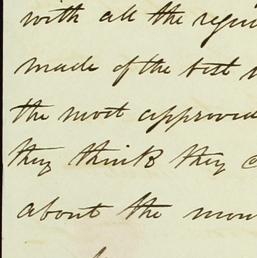 with all the
made of the best
the most approved
they think they
about the